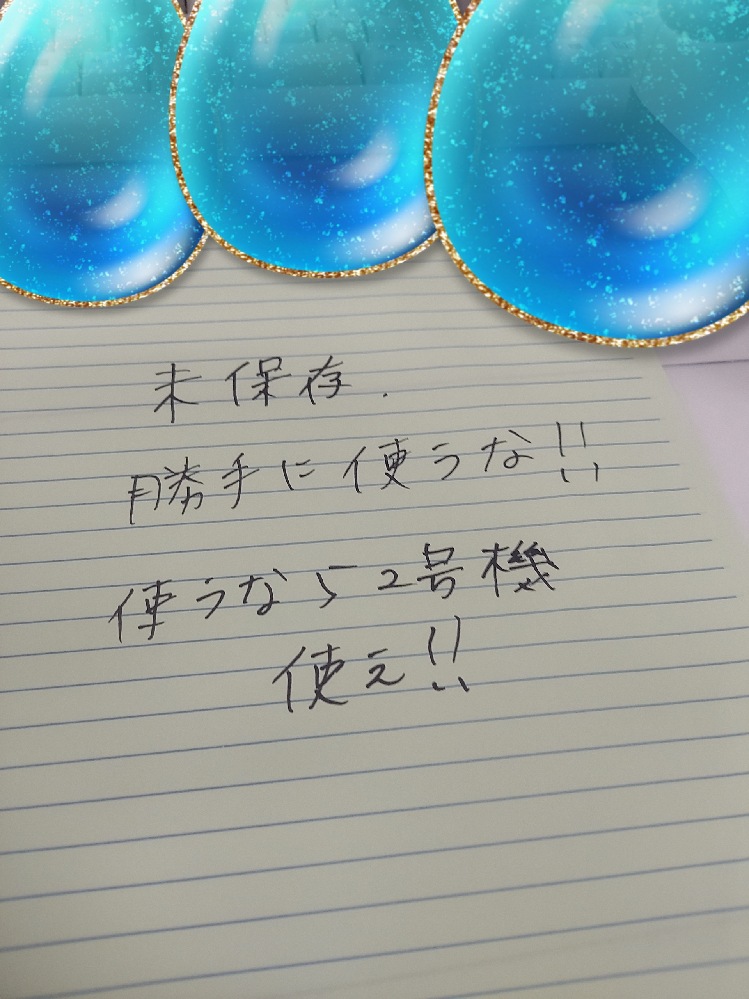 未保存.
勝手に使うな!!
使うなら2号機
使え!!